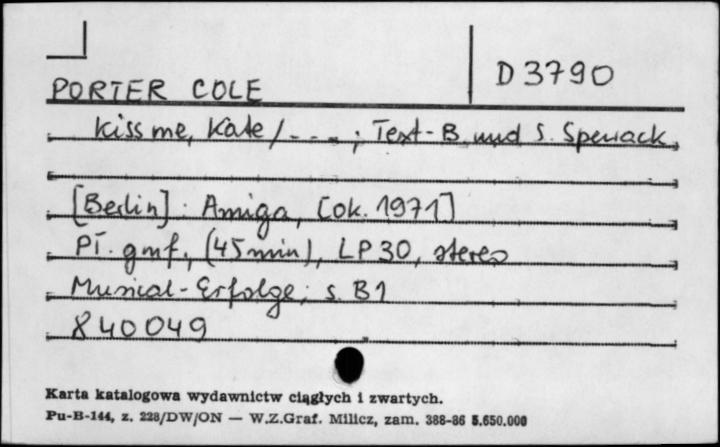 PORTER COLE
D 3790
Kiss me, Kate / - - - ; Text - B. und S. Spewack
[Berlin] : Amiga, [ok. 1971]
Pł. gmf., (45 min), LP 30, stereo
Musical-Erfolge; s. B1
840049
Karta katalogowa wydawnictw ciągłych i zwartych.
Pu-B-144, z. 228/DW/ON — W.Z.Graf. Milicz, zam. 388-86 5.650.000